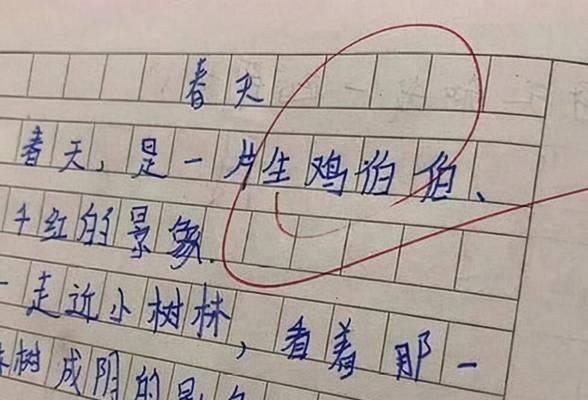 春天
春天，是一片生鸡伯伯、
千红的景象.
走近小树林，看着那一
树成阴的景